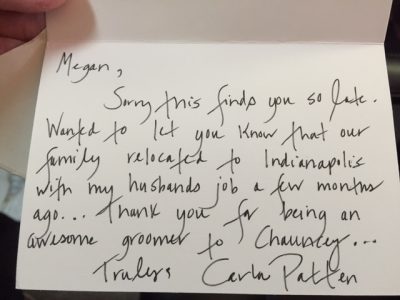 Megan,
Sorry this finds you so late.
Wanted to let you know that our
family relocated to Indianapolis
with my husbands job a few months
ago... Thank you for being an
awesome groomer to Chauncey...
Truly, Carla Patten